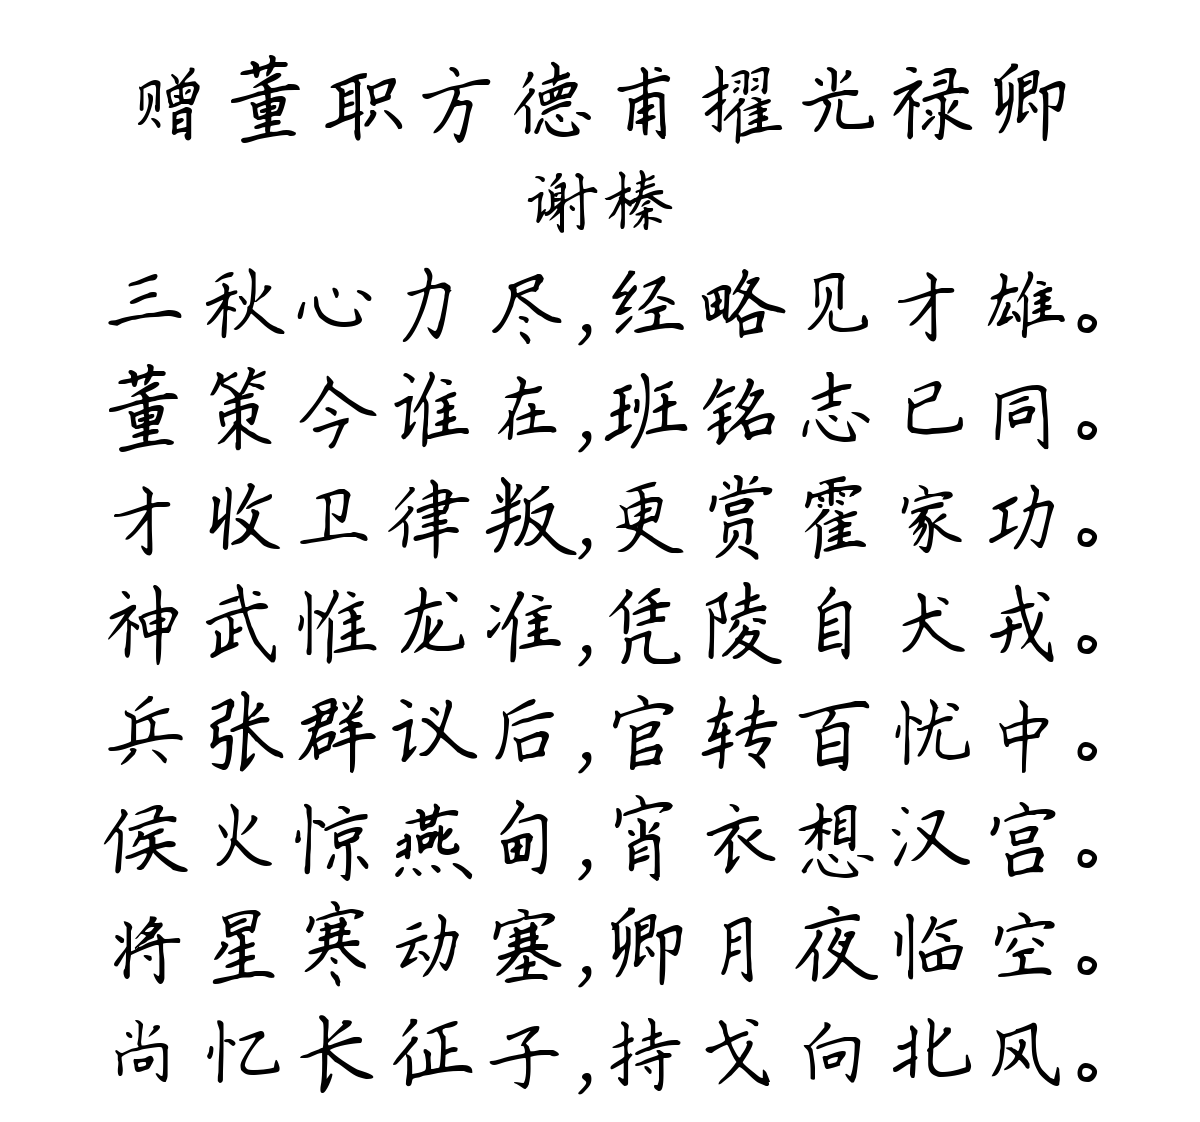 赠董职方德甫擢光禄卿
谢榛
三秋心力尽,经略见才雄。
董策今谁在,班铭志已同。
才收卫律叛,更赏霍家功。
神武惟龙准,凭陵自犬戎。
兵张群议后,官转百忧中。
侯火惊燕甸,宵衣想汉宫。
将星寒动塞,卿月夜临空。
尚忆长征子,持戈向北风。